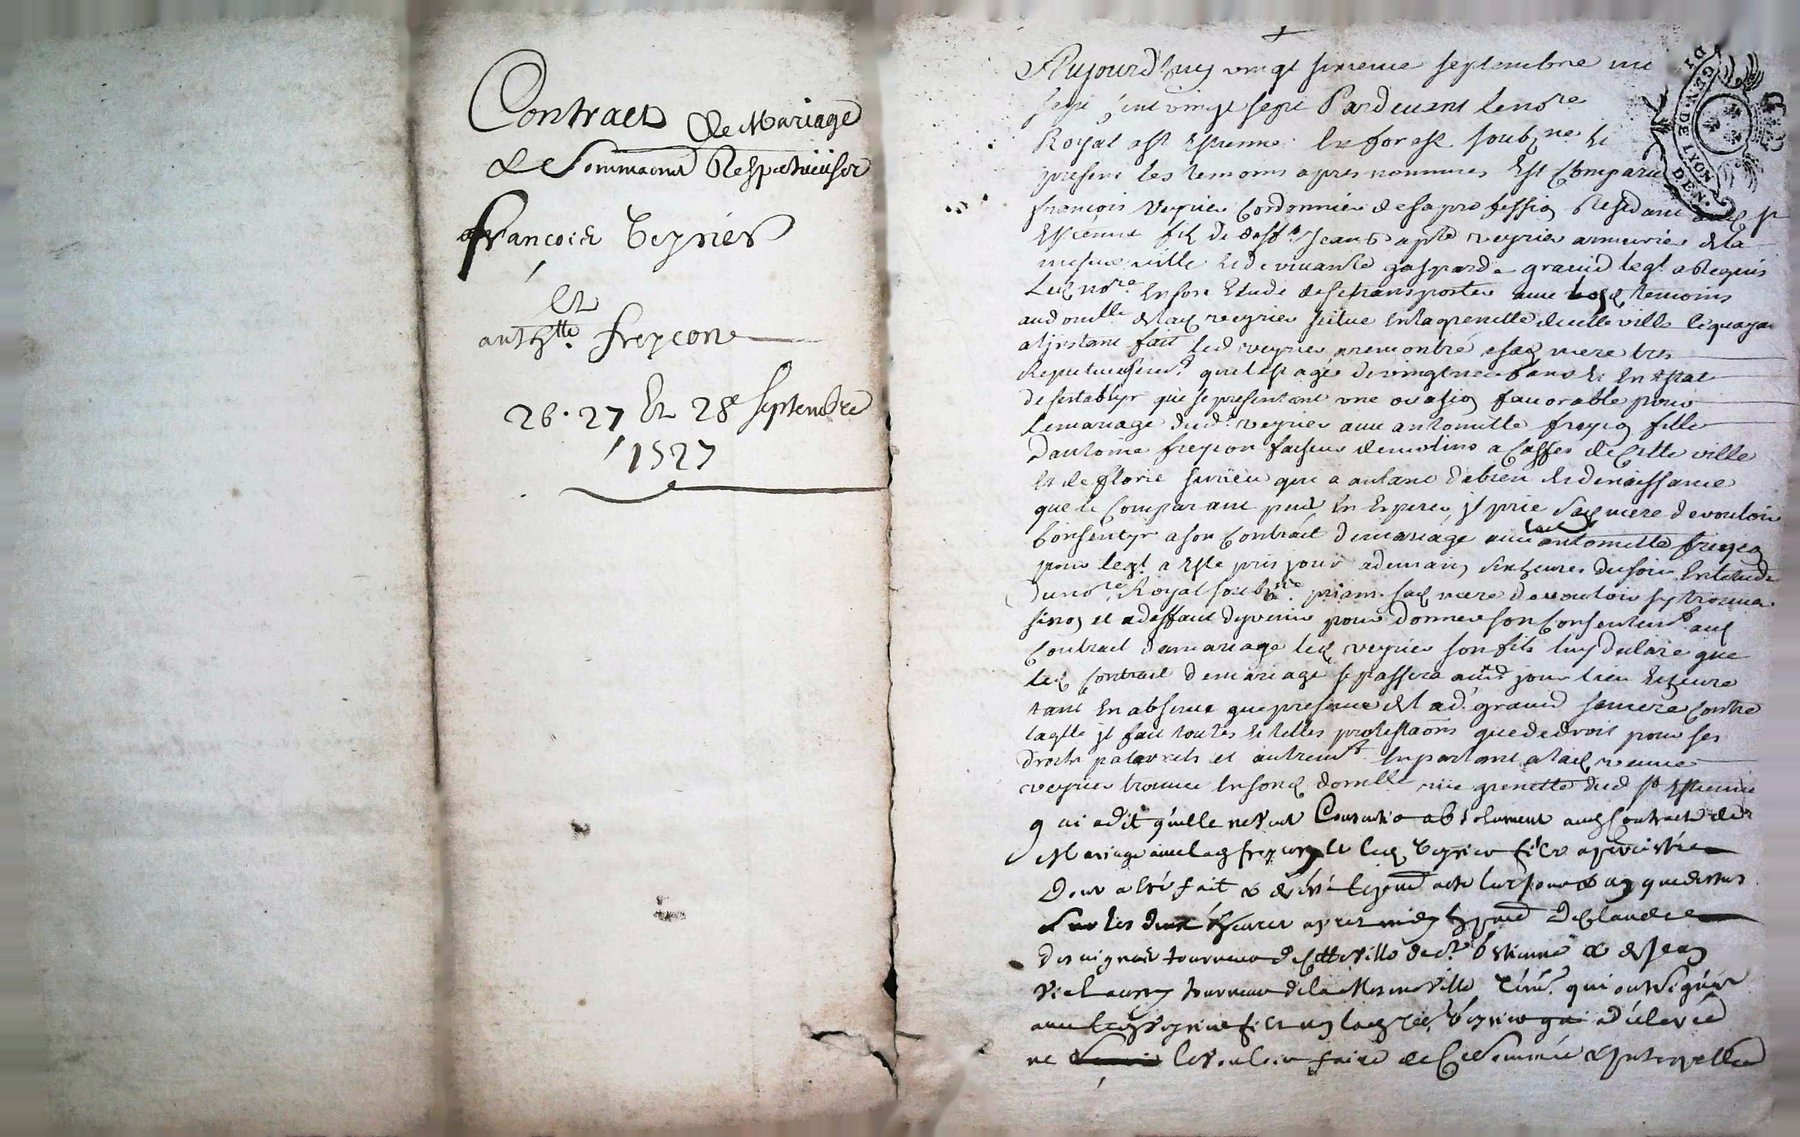 Contract de Mariage
& Sommaons Respectueuses
françois Veyrier
Et
anth.tte freycon
26. 27 Et 28e septembre
1727
Aujourd'huy vingt sixieme septembre mil
sept cent vingt sept Pardevant le no.re
Royal a st Estienne En forest soubz.ne Et
presens les temoins apres nommes Est Comparu
françois Veyrier Cordonnier de sa profession Residant st
Estienne fils de deff.t Jean bapte veyrier armurier de la
mesme ville Et de vivante gasparde graind leql a Requis
Led no.re En son Etude de se transporter avec les temoins
au domille de lad veyrier situé En la grenette de cette ville
a l'instant fait led veyrier a remontré a sad mere tres
Respectueusemt quil est agé de vingt ans Et En Estat
de s'establyr que se presentant une ocasion favorable pour
le mariage dud. veyrier avec antoinette freycon fille
d'antoine freycon faiseur de molins a Caffés de Cette ville
Et de florie qui a autant de bien Et de naissance
que le Comparant peut En Esperer, il prie sad mere de vouloir
Consentyr a son Contrait de mariage avec lad antoinette freycon
pour leql a Este pris jour a demain six heures du soir En letude
du no.re Royal soub.ne priant sad mere de vouloir sy trouver
sinon et a deffaut dy venir pour donner son Consentemt aud
Contrait de mariage led veyrier son fils luy declare que
led Contrait de mariage se passera aud jour lieu Et heure
tant En absence que presence de lad. graind sa mere Contre
laqlle il fait toutes Et telles protestaons que de droit pour ses
droits paternels et autremt En parlant a lad veuve
veyrier trouvée En son domille rüe grenette dud st Estienne
qui a dit quelle ne veut Consentir absolument aud Contract de
Mariage avec lad freycon Et led Veyrier fils a persisté
Dont a Esté fait acte les jour & an que dessus
Sur les deux heures apres midy En pnce de Claude
tourneur de Cette ville de st Estienne & de Jean
tourneur de la Mesme ville qui ont signés
avec led Veyrier fils non lad Veyrier qui a declaré
ne le vouloir faire de Ce Sommée & Interpellée
GEN. DE LYON